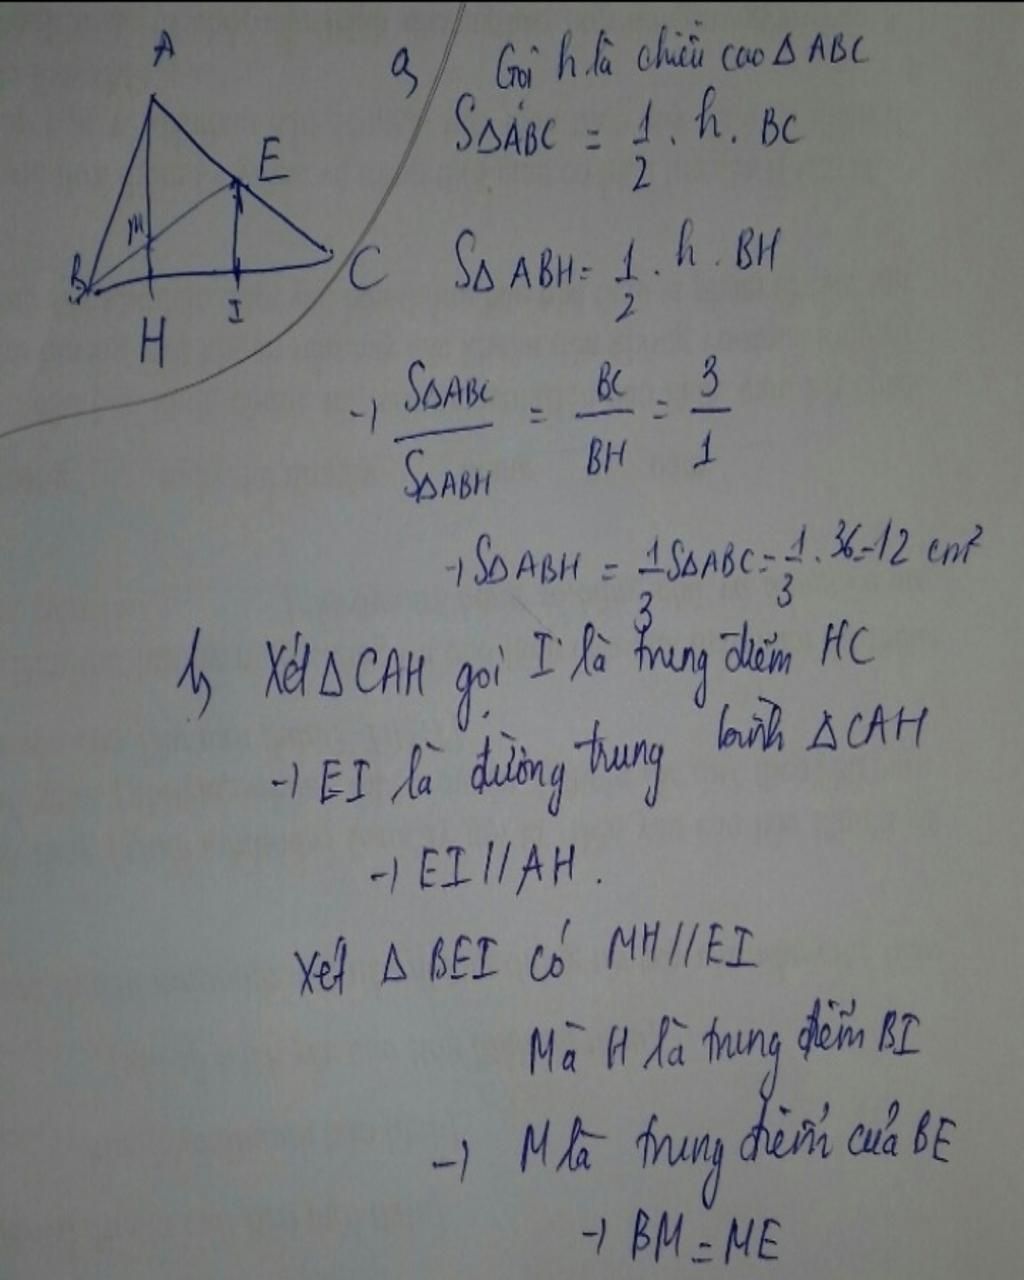 A
E
M
B
C
I
H
a, Gọi h là chiều cao Δ ABC
SΔABC = 1/2 . h . BC
SΔ ABH = 1/2 . h . BH
→ SΔABC/SΔABH = BC/BH = 3/1
→ SΔABH = 1/3 SΔABC = 1/3 . 36 = 12 cm²
b, Xét Δ CAH gọi I là trung điểm HC
→ EI là đường trung bình Δ CAH
→ EI // AH .
Xét Δ BEI có MH // EI
Mà H là trung điểm BI
→ M là trung điểm của BE
→ BM = ME